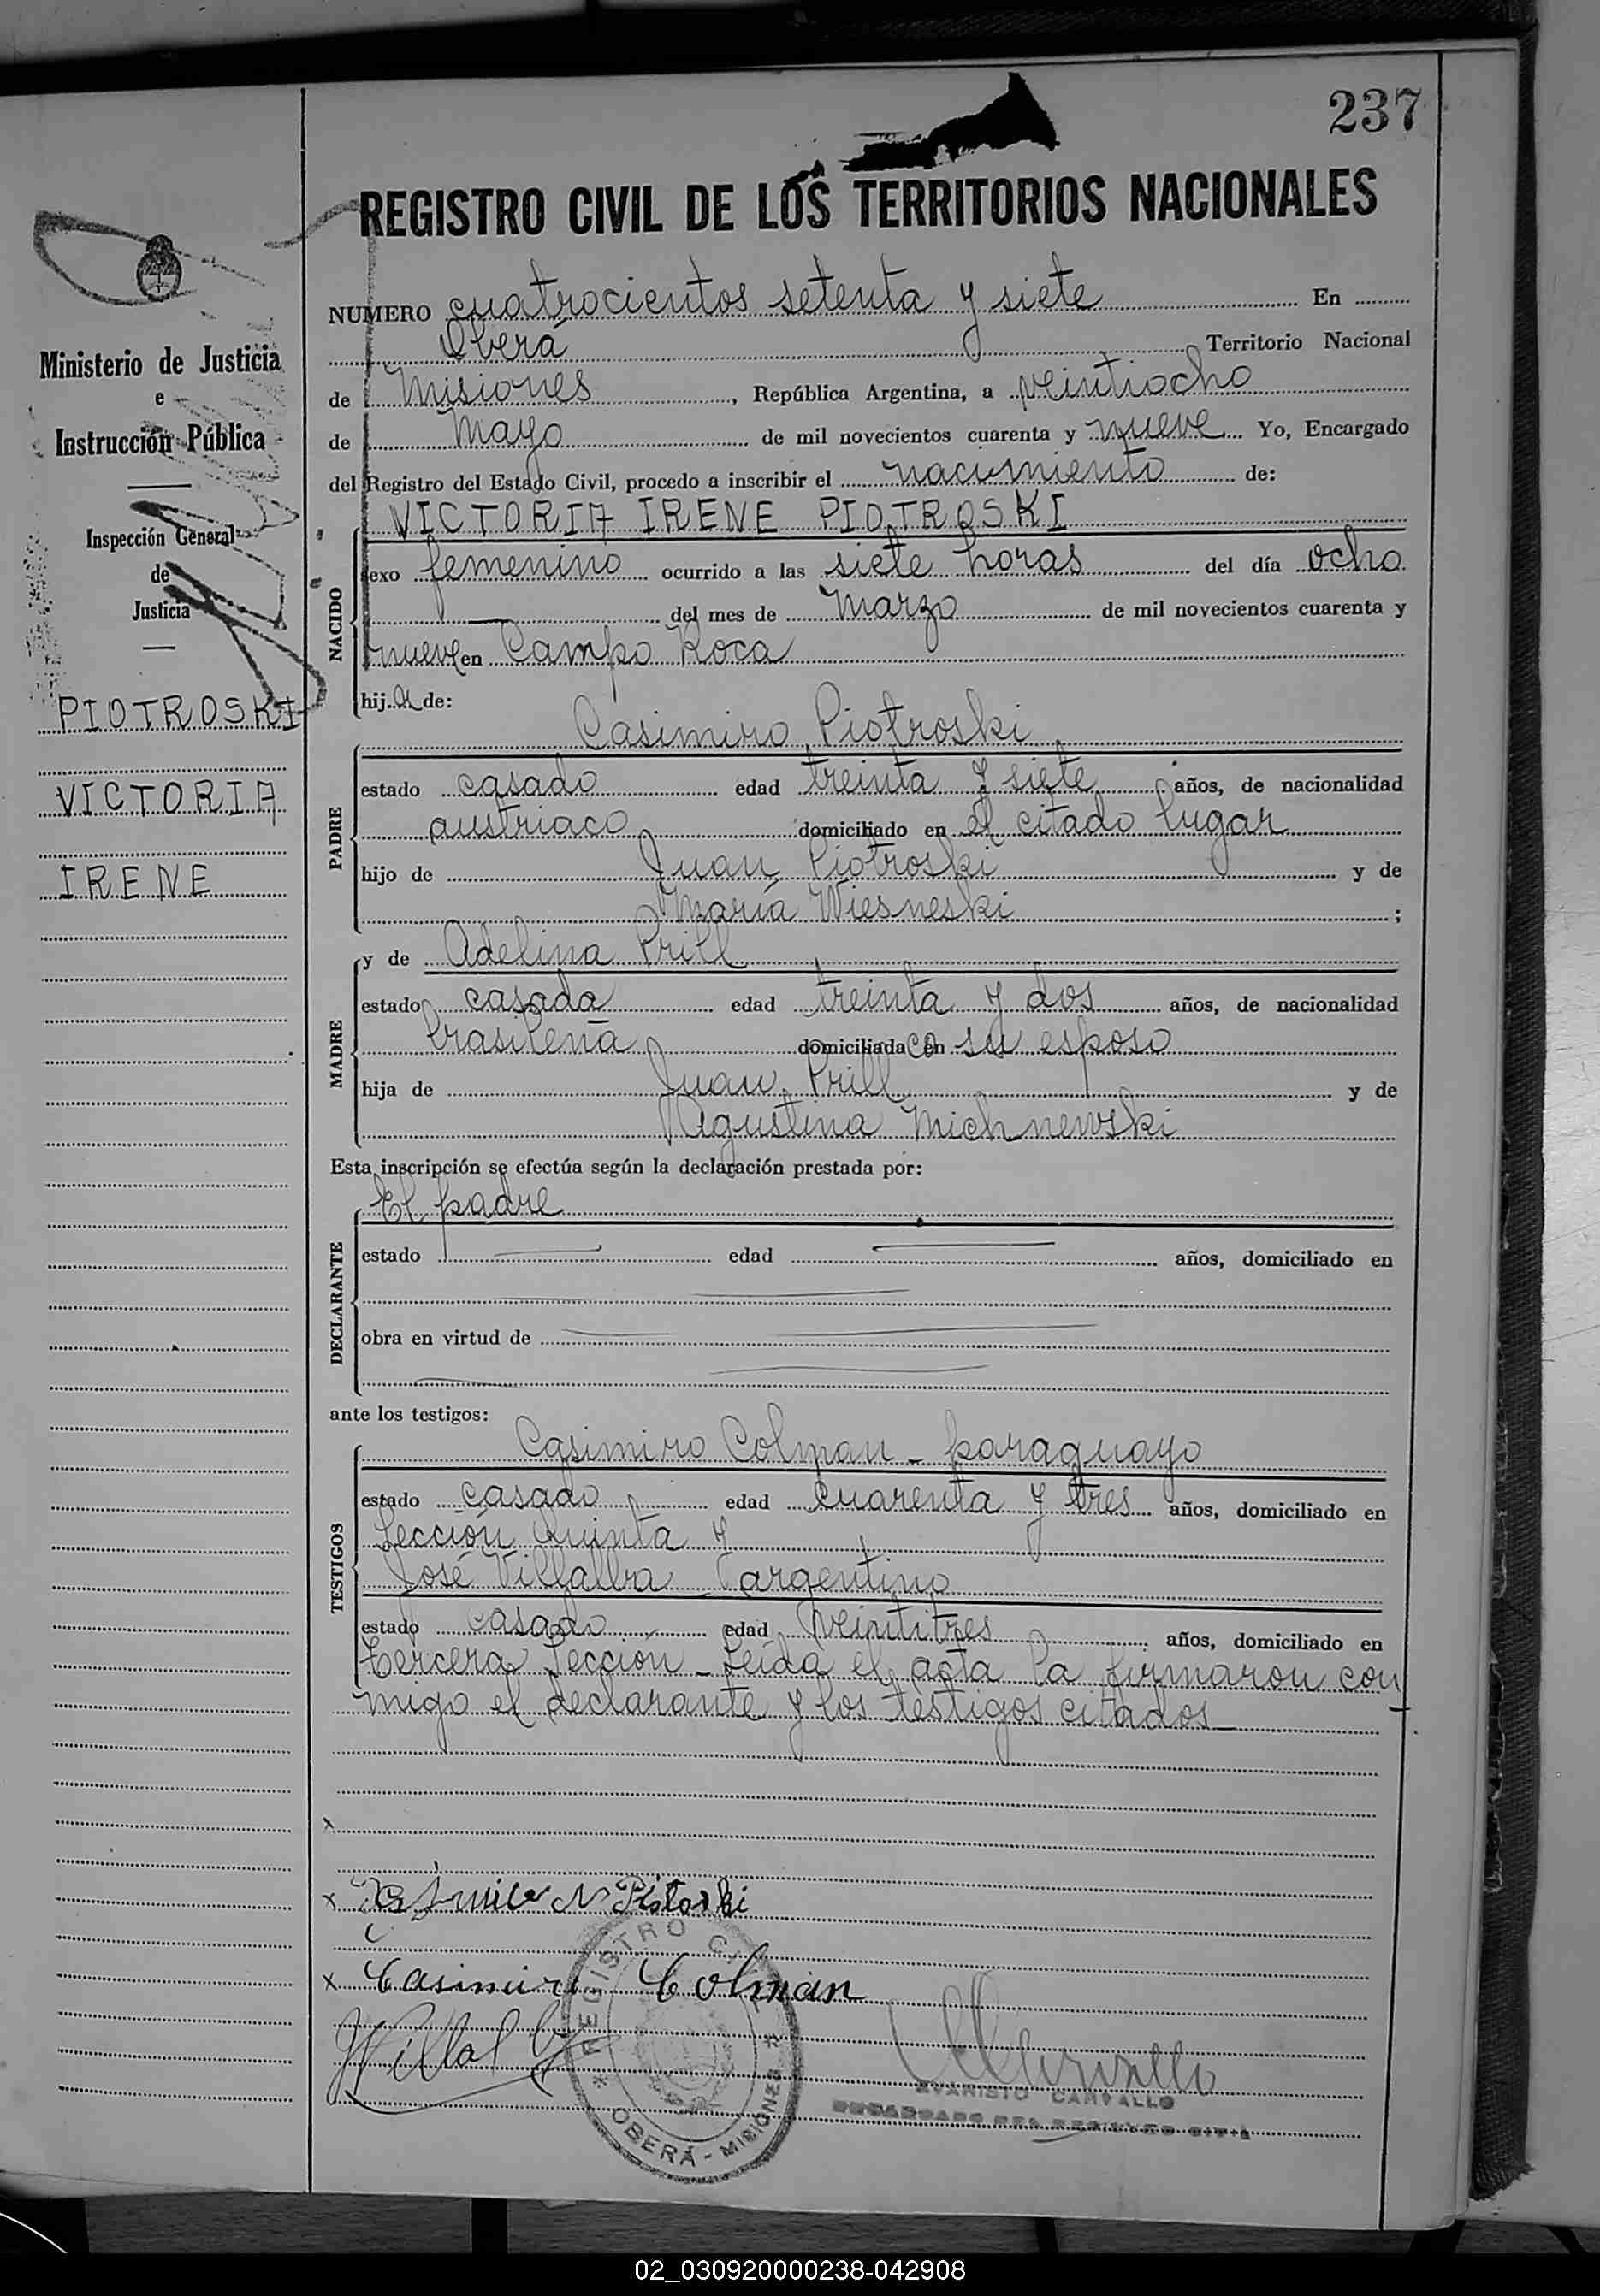 237
REGISTRO CIVIL DE LOS TERRITORIOS NACIONALES
Ministerio de Justicia
e
Instrucción Pública
Inspección General
de
Justicia
PIOTROSKI
VICTORIA
IRENE
NUMERO cuatrocientos setenta y siete En
Oberá Territorio Nacional
de Misiones, República Argentina, a veintiocho
de Mayo de mil novecientos cuarenta y nueve Yo, Encargado
del Registro del Estado Civil, procedo a inscribir el nacimiento de:
VICTORIA IRENE PIOTROSKI
NACIDO
sexo femenino ocurrido a las siete horas del día ocho
del mes de Marzo de mil novecientos cuarenta y
nueve en Campo Roca
hija de:
Casimiro Piotroski
PADRE
estado casado edad treinta y siete años, de nacionalidad
austriaco domiciliado en el citado lugar
hijo de Juan Piotroski y de
María Wiesneski;
MADRE
y de Adelina Prill
estado casada edad treinta y dos años, de nacionalidad
brasileña domiciliada con su esposo
hija de Juan Prill y de
Agustina Michnewski
Esta inscripción se efectúa según la declaración prestada por:
DECLARANTE
El padre
estado edad años, domiciliado en
obra en virtud de
ante los testigos:
TESTIGOS
Casimiro Colman - paraguayo
estado casado edad cuarenta y tres años, domiciliado en
Sección Quinta y
José Villalba argentino
estado casado edad veintitres años, domiciliado en
tercera Sección - Leída el acta la firmaron con
migo el declarante y los testigos citados
x Piotroski
x Casimiro Colman
JVillalba
REGISTRO CIVIL
* OBERÁ - MISIONES *
EVARISTO CARVALLO
ENCARGADO DEL REGISTRO CIVIL
02_030920000238-042908